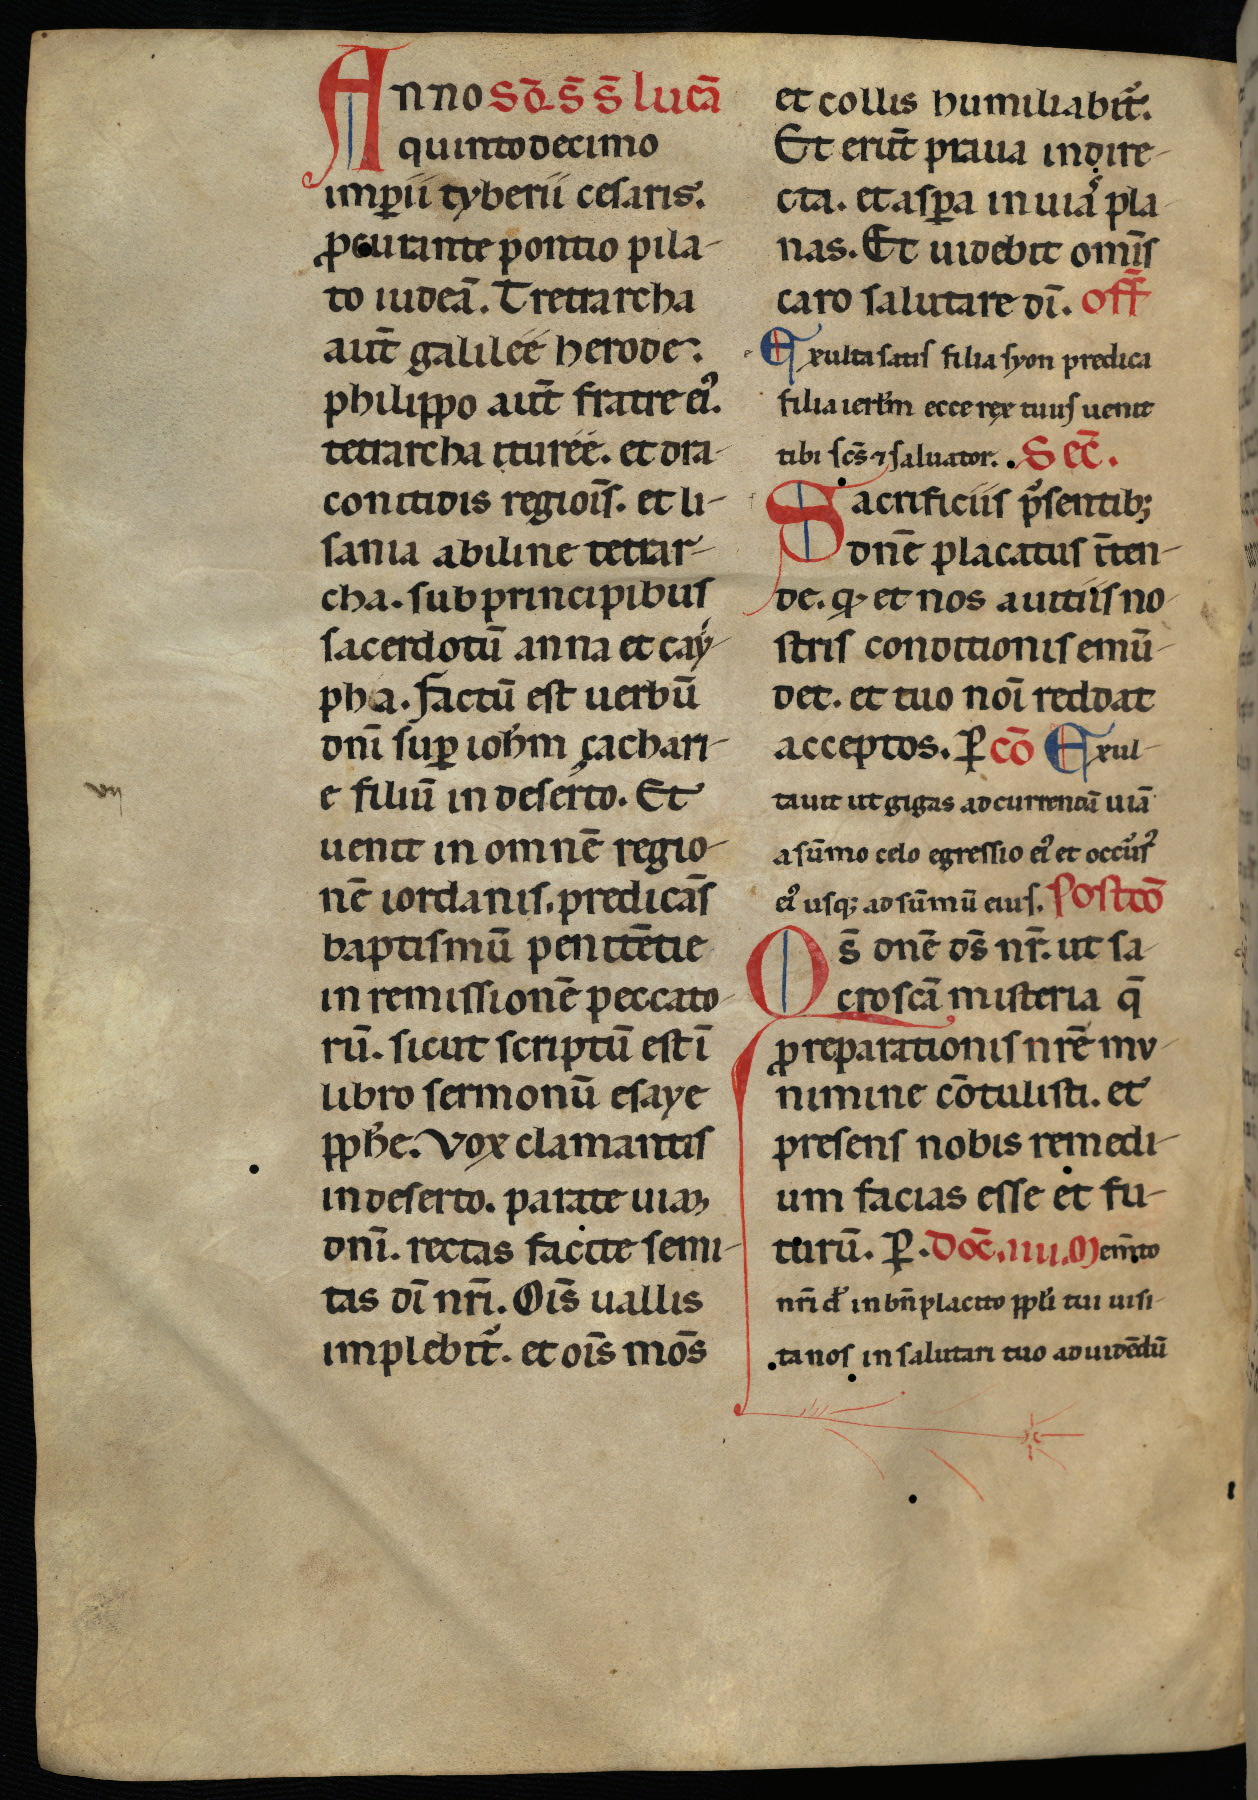 Anno Sc̄d. S̄. S̄. lucā
quintodecimo
imꝑii tyberii cesaris.
ꝓcurante pontio pila-
to iudeā. Tretrarcha
aut̄ galilee herode.
philippo aut̄ fratre eiꝰ.
tetrarcha ituree. et dra-
conitidis regiois̄. et li-
sania abiline tetrar-
cha. sub principibus
sacerdotū anna et cay-
pha. Factū est uerbū
dn̄i suꝑ ioh̄m zachari-
e filiū in deserto. Et
uenit in omnē regio-
nē iordanis. predicās
baptismū penitētie
in remissionē peccato-
rū. sicut scriptū est ī
libro sermonū esaye
ꝓph̄e. Vox clamantis
in deserto. parate uiaꝫ
dn̄i. rectas facite semi-
tas dī nr̄i. Ois̄ uallis
implebit᷑. et ois̄ mōs
et collis humiliabit᷑.
Et erūt praua in dire-
cta. et asꝑa in uias pla-
nas. Et uidebit omīs
caro salutare dī. Off̄
Exulta satis filia syon predica
filia ierl̄m ecce rex tuus uenit
tibi sc̄s ⁊ saluator. Sec̄.
Sacrificiis p̄sentibꝫ
dn̄e placatus īten-
de. ꝙ et nos a uitiis no-
stris conditionis emū-
det. et tuo noī reddat
acceptos. ꝑ cō Exul-
tauit ut gigas ad currendā uiā
a sūmo celo egressio eiꝰ et occurs᷑ꝰ
eiꝰ usqꝫ ad sūmū eius. Postcō
Qs̄ dn̄e ds̄ nr̄. ut sa-
crosc̄a misteria q̄
ꝓ reparationis nrē mu-
nimine cōtulisti. et
presens nobis remedi-
um facias esse et fu-
turū. ꝑ. Doc̄. iiii. Mem̄to
nr̄i d᷑ in bn̄placito ꝓpl̄i tui uisi-
ta nos in salutari tuo ad uidēdū